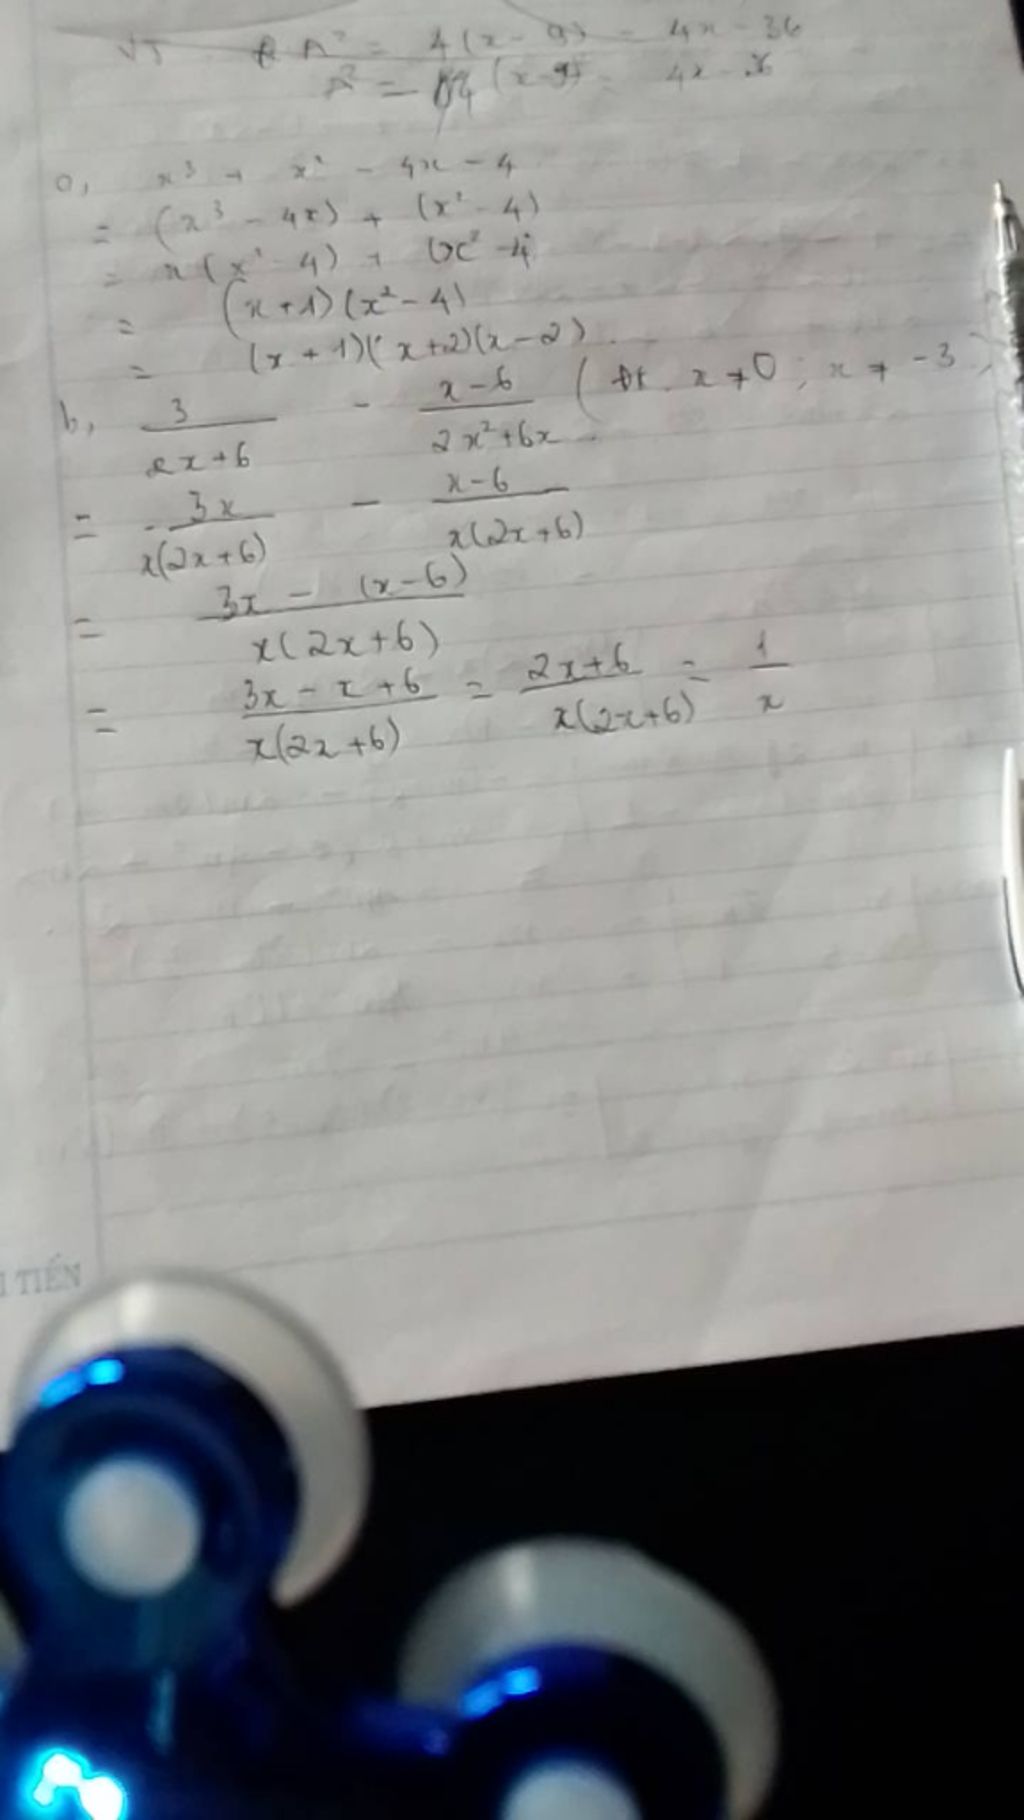 A² = 4(x - 9) = 4x - 36
A² = (x-9) 4x - 36
a, x³ + x² - 4x - 4
= (x³ - 4x) + (x² - 4)
= x(x² - 4) + (x² - 4)
= (x+1)(x² - 4)
= (x+1)(x+2)(x-2)
b, 3/(2x+6) - (x-6)/(2x²+6x) (ĐK x ≠ 0; x ≠ -3)
= 3x/(x(2x+6)) - (x-6)/(x(2x+6))
= (3x - (x-6))/(x(2x+6))
= (3x - x + 6)/(x(2x+6)) = (2x+6)/(x(2x+6)) = 1/x
TIẾN